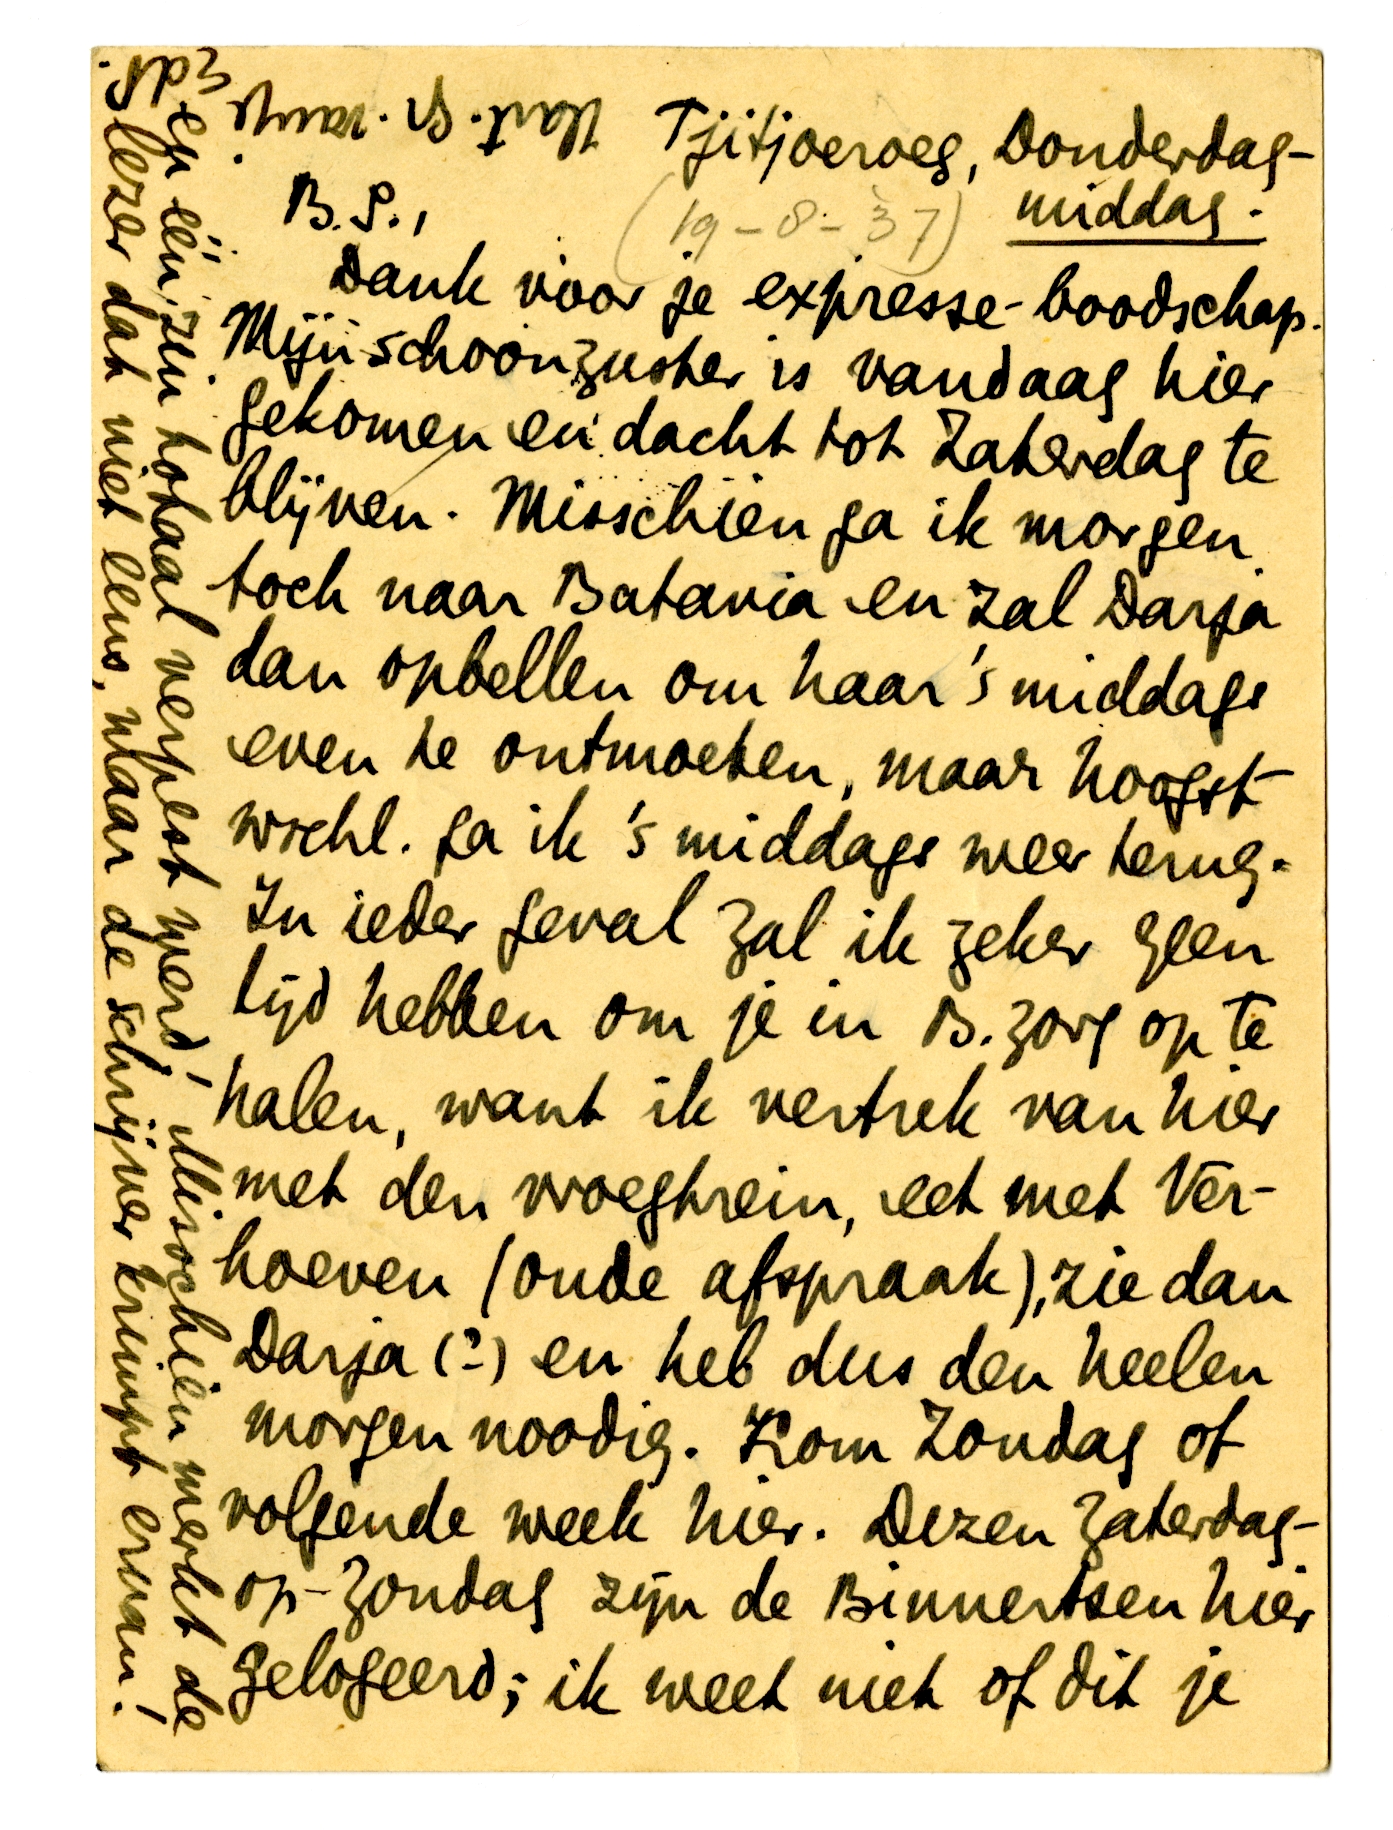 Tjitjoeroeg, Donderdag-
middag.
(19-8-37)
B.S.,
Dank voor je expresse-boodschap.
Mijn schoonzuster is vandaag hier
gekomen en dacht tot Zaterdag te
blijven. Misschien ga ik morgen
toch naar Batavia en zal Darja
dan opbellen om haar 's middags
even te ontmoeten, maar hoogst-
wschl. ga ik 's middags weer terug.
In ieder geval zal ik zeker geen
tijd hebben om je in B.zorg op te
halen, want ik vertrek van hier
met den vroegtrein, eet met Ver-
hoeven (oude afspraak), zie dan
Darja (?) en heb dus den heelen
morgen noodig. Kom Zondag of
volgende week hier. Dezen Zaterdag-
op-Zondag zijn de Binnertsen hier
gelogeerd; ik weet niet of dit je
en één zin totaal verpest werd! Misschien merkt de
lezer dat niet eens, maar de schrijver krimpt ervan!
Hart. gr. van je
EdP.